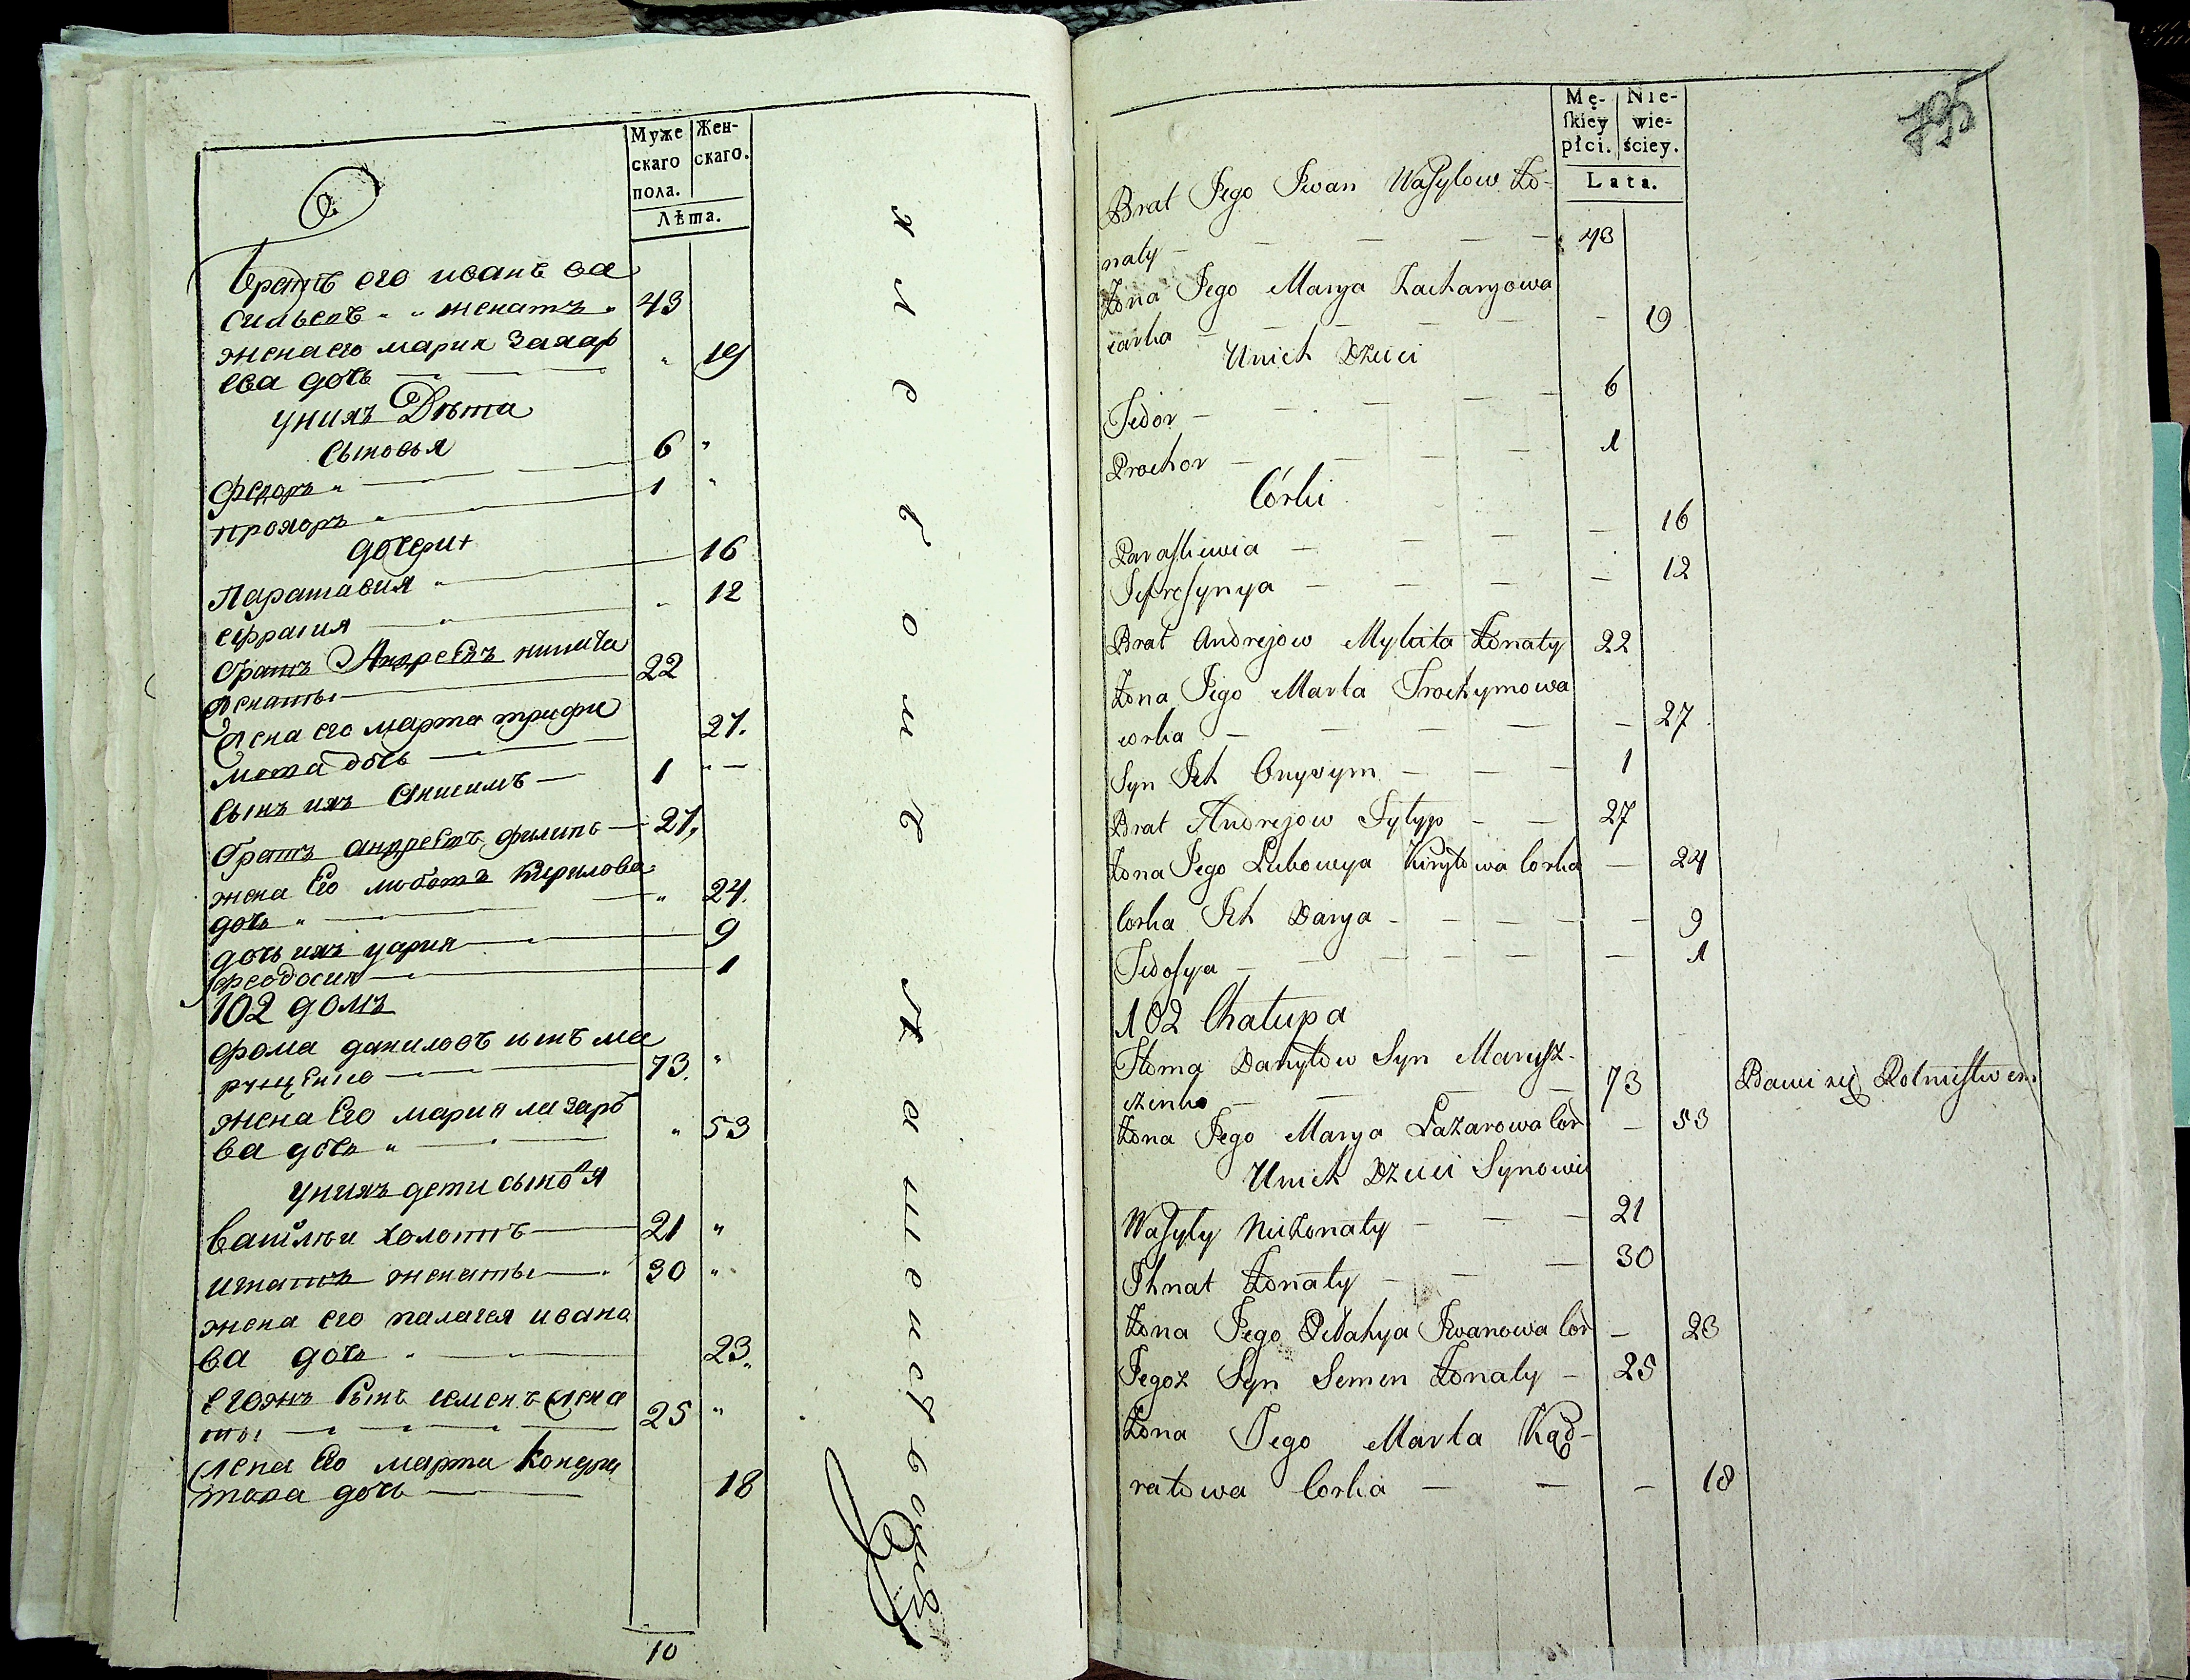 Муже
скаго
пола.
Жен-
скаго.
Лѣта.
братъ его иванъ ва
сильевъ " " женатъ " 43
жена его мария захар
ева дочь — — " 19
у нихъ Дѣти
сыновья
федоръ " — 6 "
прохоръ " — 1 "
дочери
Параскавия " — 16
ефрасия — " 12
братъ Андреевъ никита
женаты — 22
жена его марта трифи
мова дочь — 27.
сынъ ихъ Онисимъ — 1 " —
братъ андреевъ филипъ — 27,
жена Его любовъ Кирилова
дочь " — " 24.
дочь ихъ дария — 9
феодосия — 1
102 домъ
фома даниловъ сынъ ма
рущенко — 73. "
жена Его мария лазаре
ва дочь " — " 53
у нихъ дети сыновья
василѣи холостъ — 21 "
игнатъ женаты — 30 "
жена его палагея ивано
ва дочь " — 23.
егожъ сынъ семенъ жена
ты — 25 "
жена Его марта Кондра
това дочь — 18
10
Mę-
skiey
płci.
Nie-
wie-
ściey.
Lata.
795
Brat Jego Iwan Wasylow Żo-
naty — — — — — 43
Żona Jego Marya Zacharyowa
corka — — — — — 19
Unich Dzieci
Fedor — — — — 6
Prochor — — — — 1
Córki
Paraskiewia — — — — 16
Jefresynya — — — — 12
Brat Andrejow Mykita Żonaty 22
Żona Jego Marta Trochymowa
corka — — — — — 27
Syn Ich Onysym — — — 1
Brat Andrejow Fylyp — — 27
Żona Jego Lubowya Kiryłowa Corka — 24
Corka Ich Darya — — — — — 9
Fedosya — — — — — 1
102 Chałupa
Homa Danyłow Syn Marusz-
czenko — — — 73 Bawi się Rolnistwem
Żona Jego Marya Łazarowa Cor — 53
Unich Dzieci Synowie
Wasyly Nieżonaty — — — 21
Ihnat Żonaty — — — 30
Żona Jego Pelahya Iwanowa Cor — 23
Jegoż Syn Semen Żonaty — 25
Żona Jego Marta Kąd-
ratowa Corka — — — 18